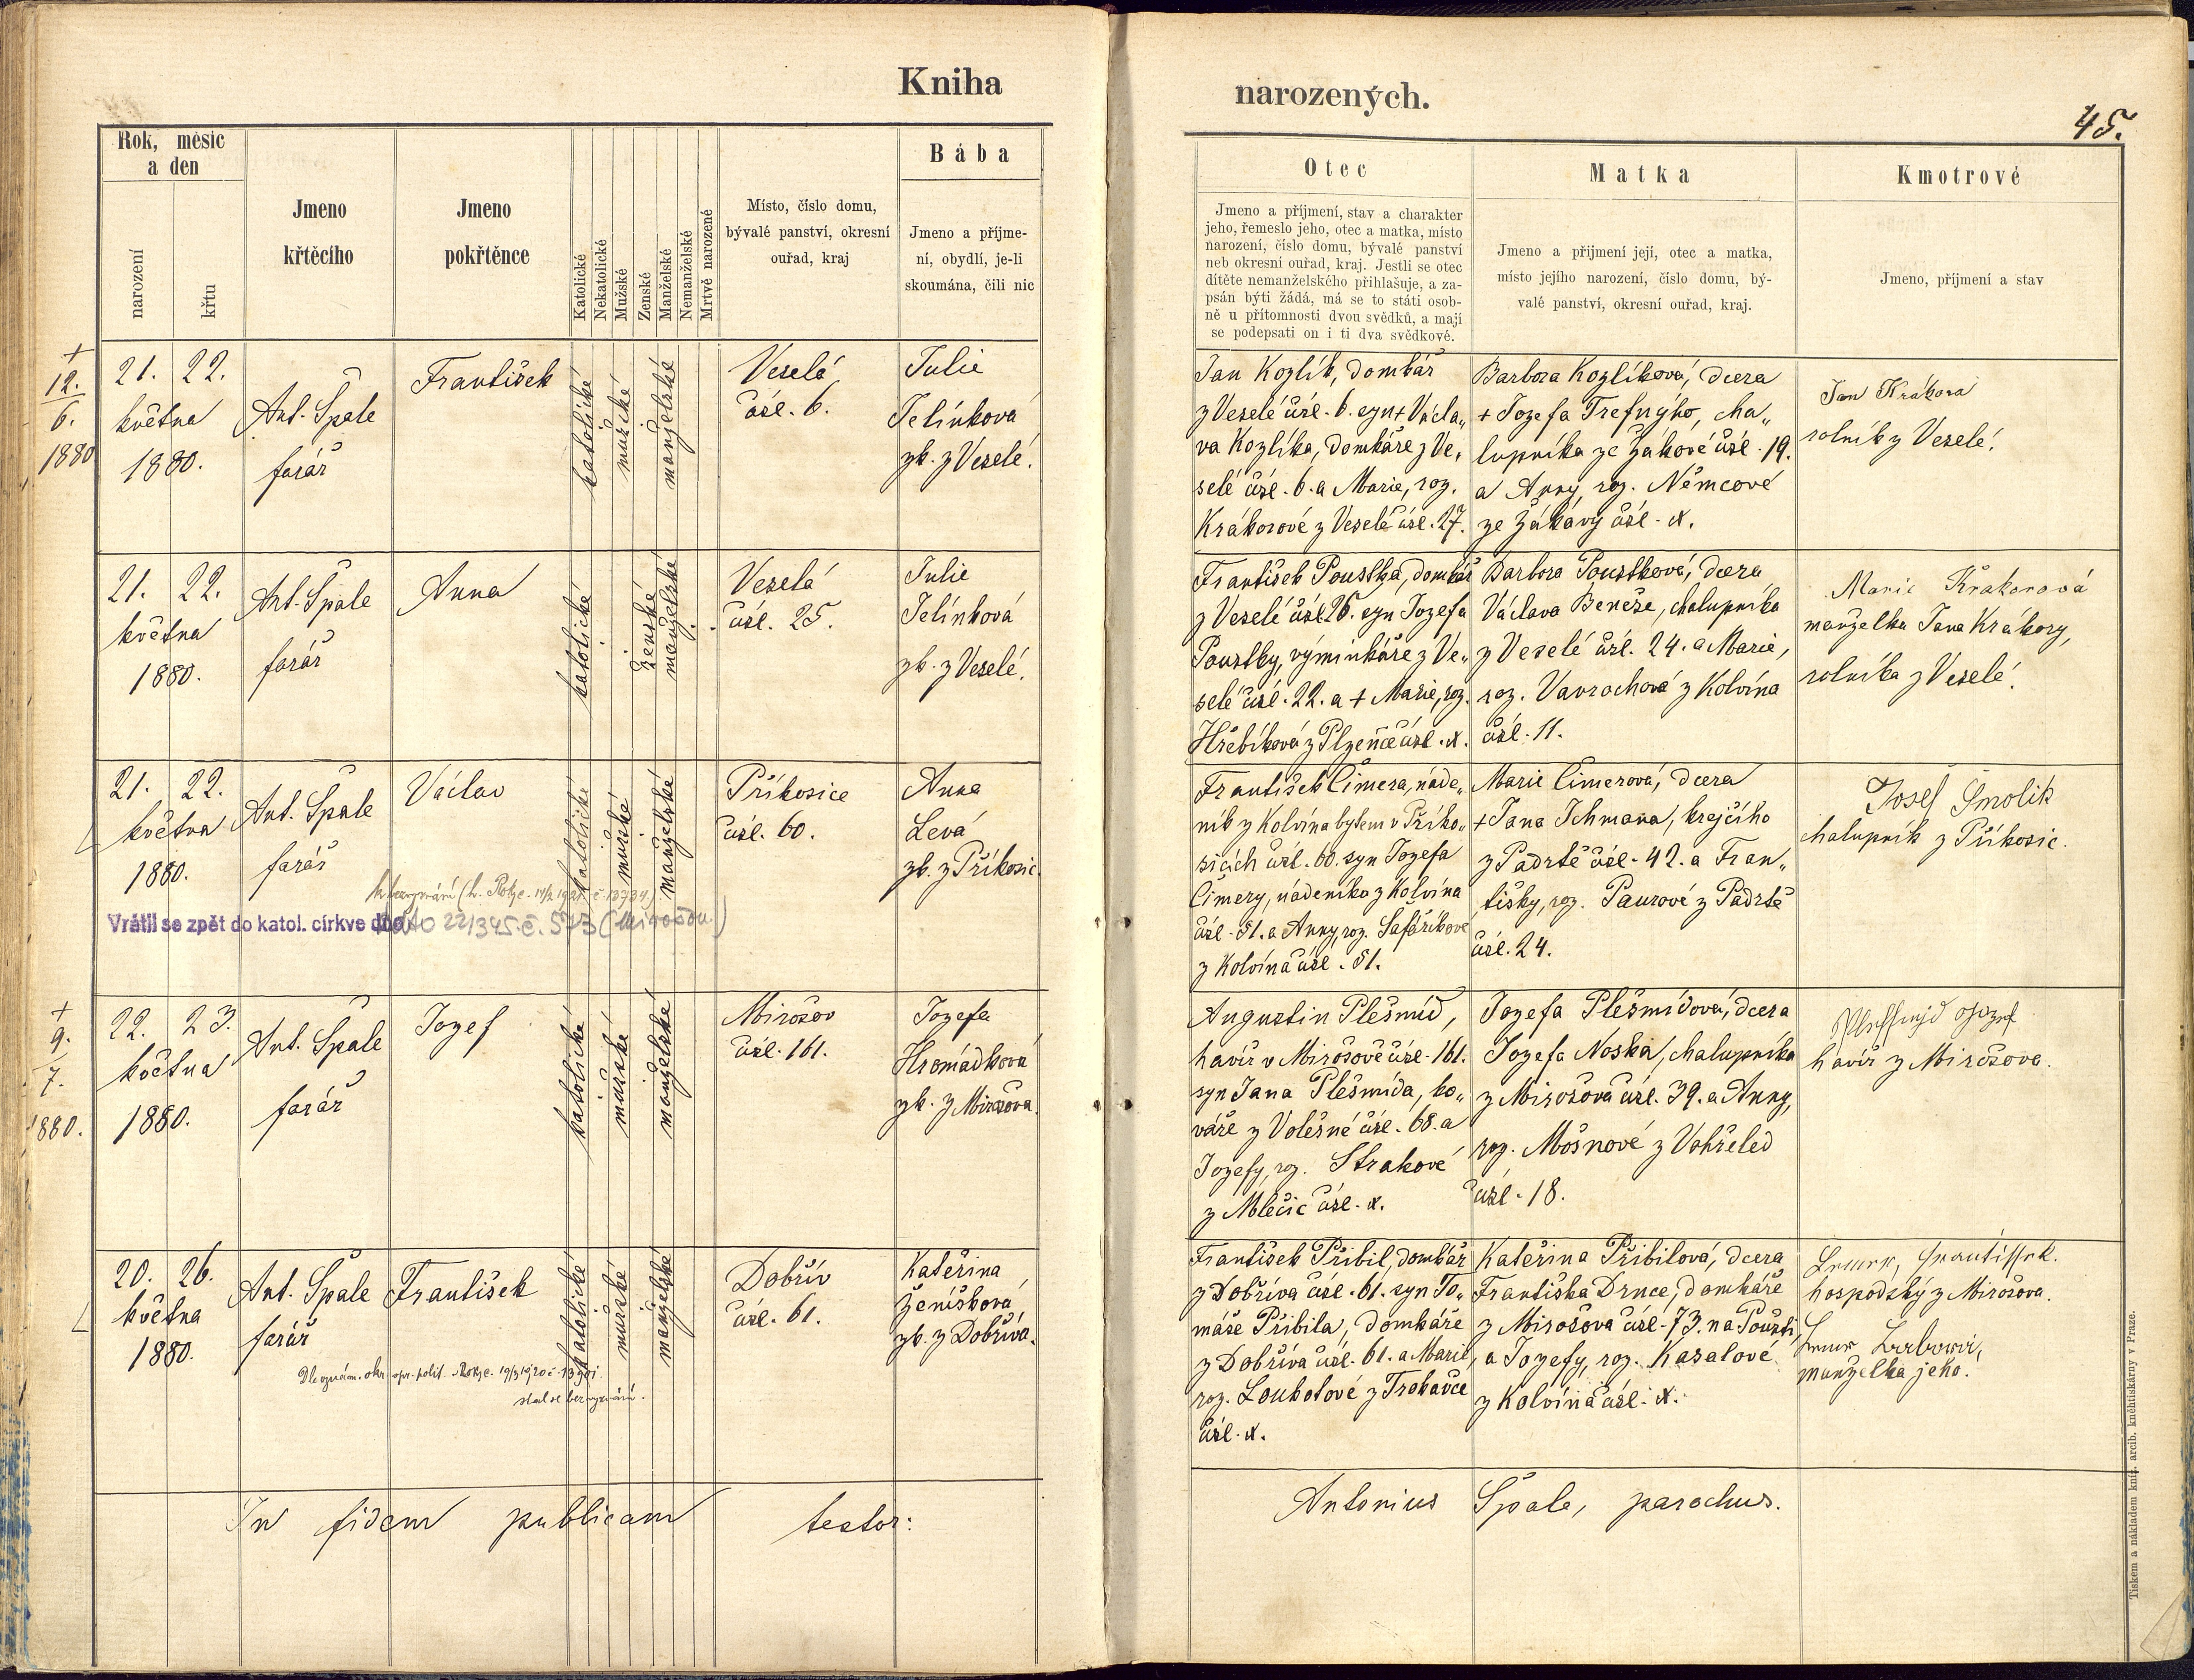 Kniha
narozených.
45.
Rok, měsíc
a den
narození
křtu
Jmeno
křtěcího
Jmeno
pokřtěnce
Katolické
Nekatolické
Mužské
Ženské
Manželské
Nemanželské
Mrtvě narozené
Místo, číslo domu,
bývalé panství, okresní
ouřad, kraj
Bába
Jmeno a příjme-
ní, obydlí, je-li
skoumána, čili nic
Otec
Jmeno a příjmení, stav a charakter
jeho, řemeslo jeho, otec a matka, místo
narození, číslo domu, bývalé panství
neb okresní ouřad, kraj. Jestli se otec
dítěte nemanželského přihlašuje, a za-
psán býti žádá, má se to státi osob-
ně u přítomnosti dvou svědků, a mají
se podepsati on i ti dva svědkové.
Matka
Jmeno a přijmení její, otec a matka,
místo jejího narození, číslo domu, bý-
valé panství, okresní ouřad, kraj.
Kmotrové
Jmeno, příjmení a stav
+
12.
6.
1880
21. 22.
května
1880.
Ant. Špale
farář
František
katolické
mužské
manželské
Veselá
čísl. 6.
Julie
Jelínkova
zk. z Veselé.
Jan Kozlík, domkář
z Veselé čísl. 6. syn + Václa„
va Kozlíka, domkáře z Ve„
selé čísl. 6. a Marie, roz.
Krákorové z Veselé čísl. 27.
Barbora Kozlíková, dcera
+ Jozefa Trefnýho, cha„
lupníka ze Žákové čísl. 19.
a Anny, roz. Němcové
ze Žákavy čísl. x.
Jan Krákora
rolník z Veselé.
21. 22.
května
1880.
Ant. Špale
farář
Anna
katolické
ženské
manželské
Veselá
čísl. 25.
Julie
Jelínková
zk. z Veselé.
František Poustka, domkář
z Veselé čísl. 25. syn Jozefa
Poustky, výminkáře z Ve„
selé čísl. 22. a + Marie, roz.
Hřebíková z Plzence čísl. x.
Barbora Poustková, dcera
Václava Beneše, chalupníka
z Veselé čísl. 24. a Marie,
roz. Vavrochová z Kolvína
čísl. 11.
Marie Krákorová
manželka Jana Krákory,
rolníka z Veselé.
21. 22.
května
1880.
Ant. Špale
farář
Václav
katolické
mužské
manželské
Příkosice
čísl. 60.
Anna
Levá
zk. z Příkosic.
Vrátil se zpět do katol. církve dne
František Čimera, náde„
ník z Kolvína bytem v Příko„
sicích čísl. 60. syn Jozefa
Čimery, nádeníka z Kolvína
čísl. 51. a Anny, roz. Šafaříkové
z Kolvína čísl. 51.
Marie Čimerová, dcera
+ Jana Schmana, krejčího
z Padrtě čísl. 42. a Fran„
tišky, roz. Paurové z Padrtě
čísl. 24.
Josef Smolík
chalupník z Příkosic.
+
9.
7.
1880.
22. 23.
května
1880.
Ant. Špale
farář
Jozef
katolické
mužské
manželské
Mirošov
čísl. 161.
Jozefa
Hromádková
zk. z Mirošova.
Augustin Plešmíd,
havíř v Mirošově čísl. 161.
syn Jana Plešmída, ko„
váře z Volešné čísl. 68. a
Jozefy, roz. Strakové
z Mlečic čísl. x.
Jozefa Plešmídová, dcera
Jozefa Noska, chalupníka
z Mirošova čísl. 39. a Anny,
roz. Mošnové z Vokřeled
čísl. 18.
havíř z Mirošova.
20. 26.
května
1880.
Ant. Špale
farář
František
katolické
mužské
manželské
Dobřív
čísl. 61.
Kateřina
Ženíšková
zk. z Dobříva.
stal se bez vyznání.
František Přibil, domkář
z Dobříva čísl. 61. syn To„
máše Přibila, domkáře
z Dobříva čísl. 61. a Marie,
roz. Loukotové z Trokavce
čísl. x.
Kateřina Přibilová, dcera
Františka Drnce, domkáře
z Mirošova čísl. 73. na Poušti,
a Jozefy, roz. Kasalové
z Kolvína čísl. x.
hospodský z Mirošova.
manželka jeho.
In fidem publicam testor:
Antonius Špale, parochus.
Tiskem a nákladem kníž. arcib. kněhtiskárny v Praze.